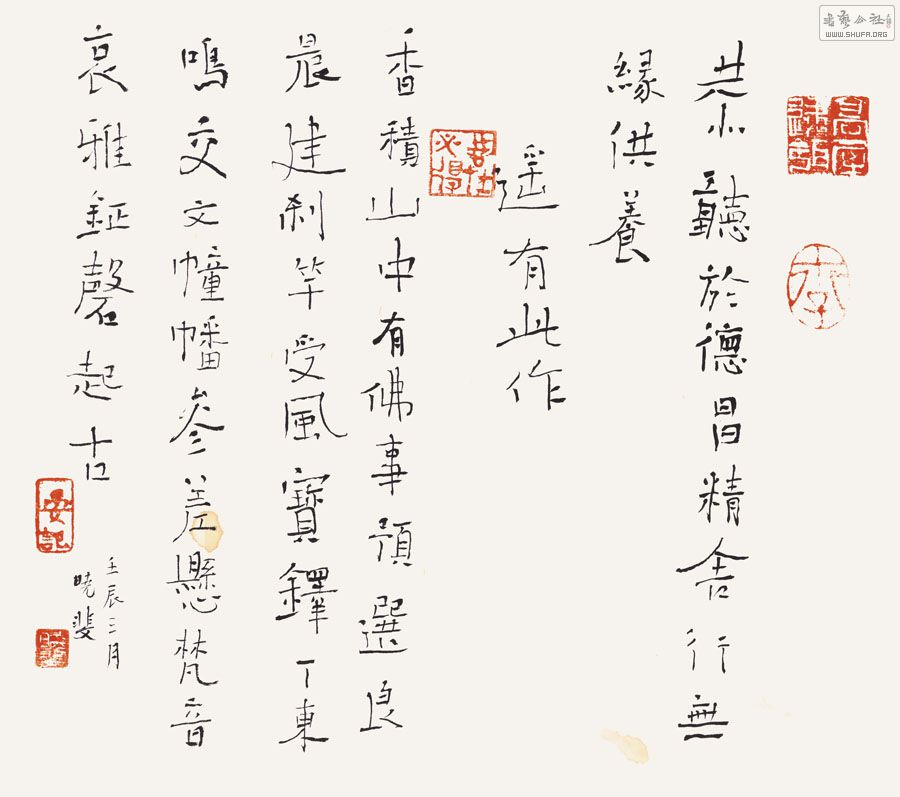 恭聽於德昌精舍行無
緣供養
遥有此作
香積山中有佛事預選良
晨建刹竿受風寶鐸丁東
鳴交文幢幡參差懸梵音
哀雅鉦磬起古
壬辰三月
曉斐
WWW.SHUFA.ORG